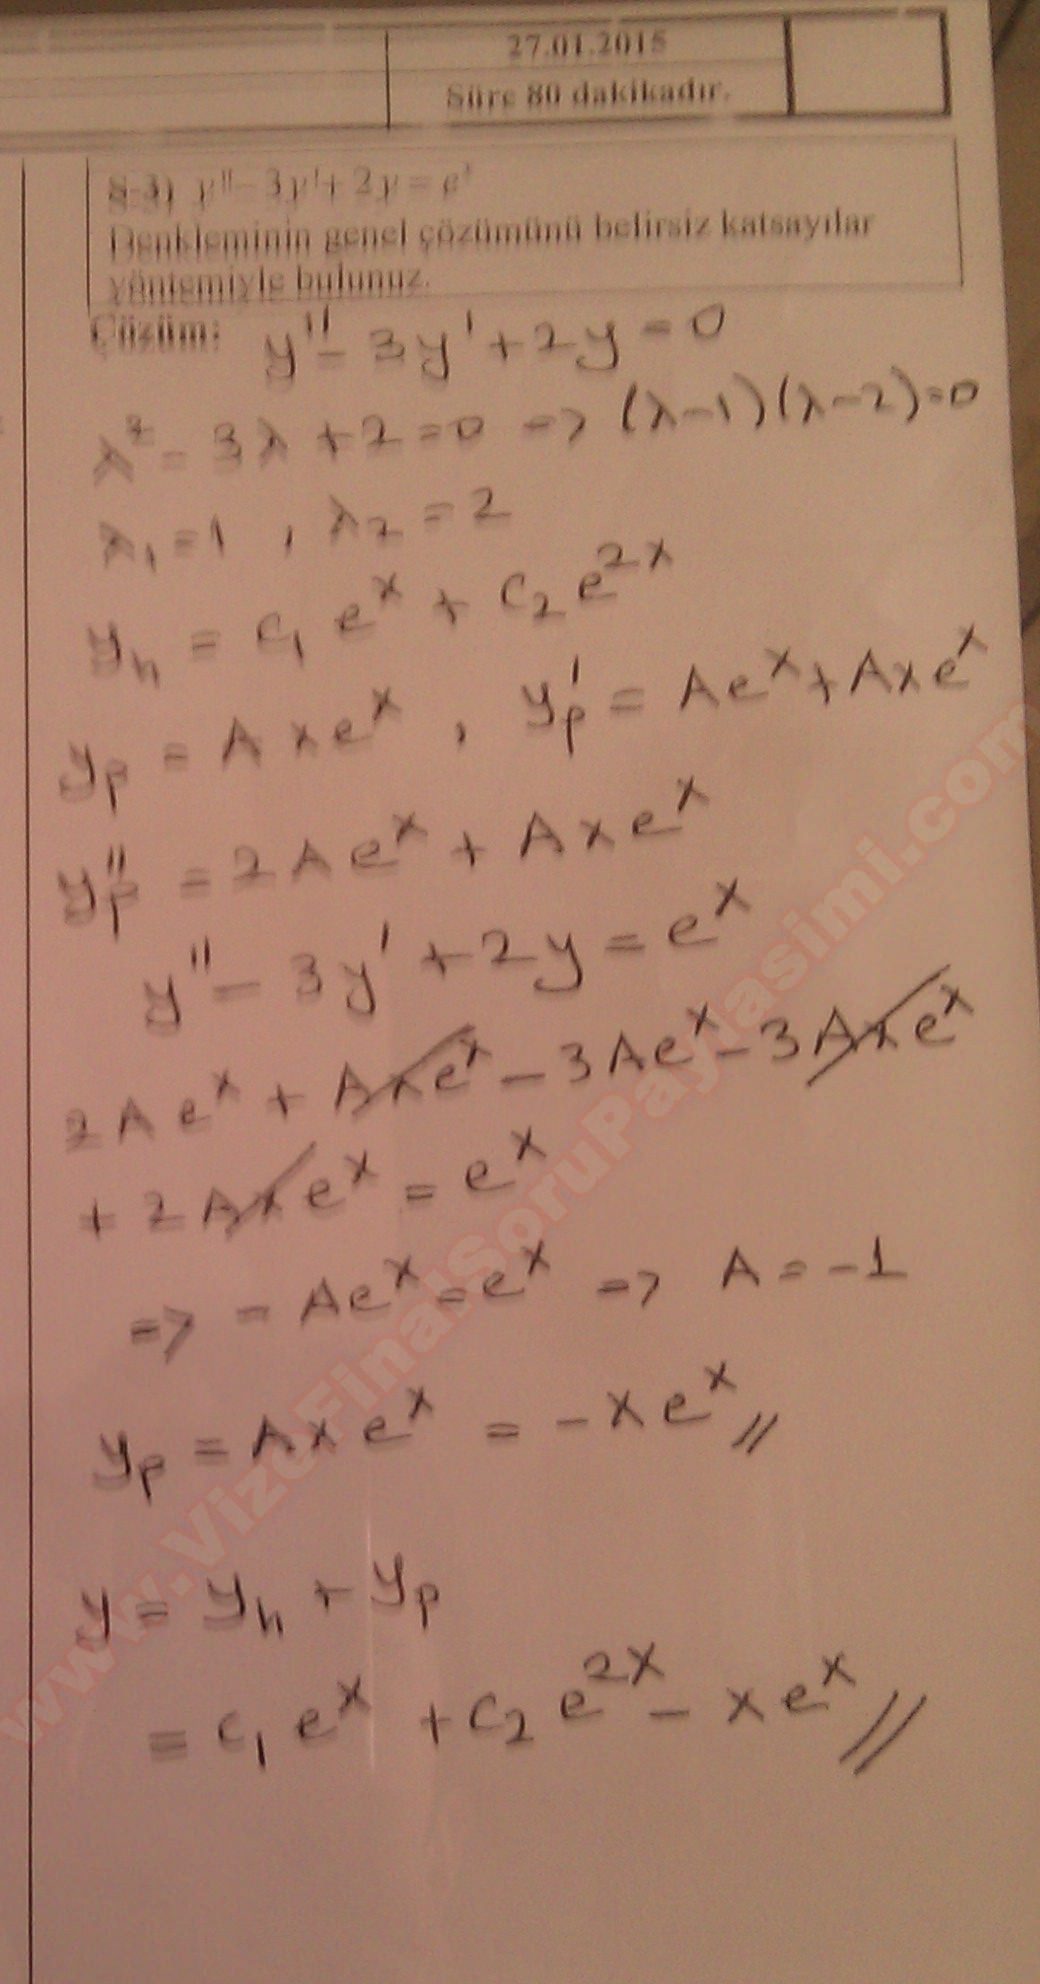 27.01.2015
Süre 80 dakikadır.
S-3) y'' - 3y' + 2y = eˣ
Denkleminin genel çözümünü belirsiz katsayılar
yöntemiyle bulunuz.
Çözüm: y'' - 3y' + 2y = 0
λ² - 3λ + 2 = 0 => (λ-1)(λ-2) = 0
λ₁ = 1 , λ₂ = 2
yₕ = c₁ eˣ + c₂ e²ˣ
yₚ = A x eˣ , yₚ' = A eˣ + A x eˣ
yₚ'' = 2A eˣ + A x eˣ
y'' - 3y' + 2y = eˣ
2A eˣ + A x eˣ - 3A eˣ - 3A x eˣ
+ 2A x eˣ = eˣ
=> - A eˣ = eˣ => A = -1
yₚ = A x eˣ = - x eˣ //
y = yₕ + yₚ
= c₁ eˣ + c₂ e²ˣ - x eˣ //
www.VizeFinalSoruPaylasimi.com